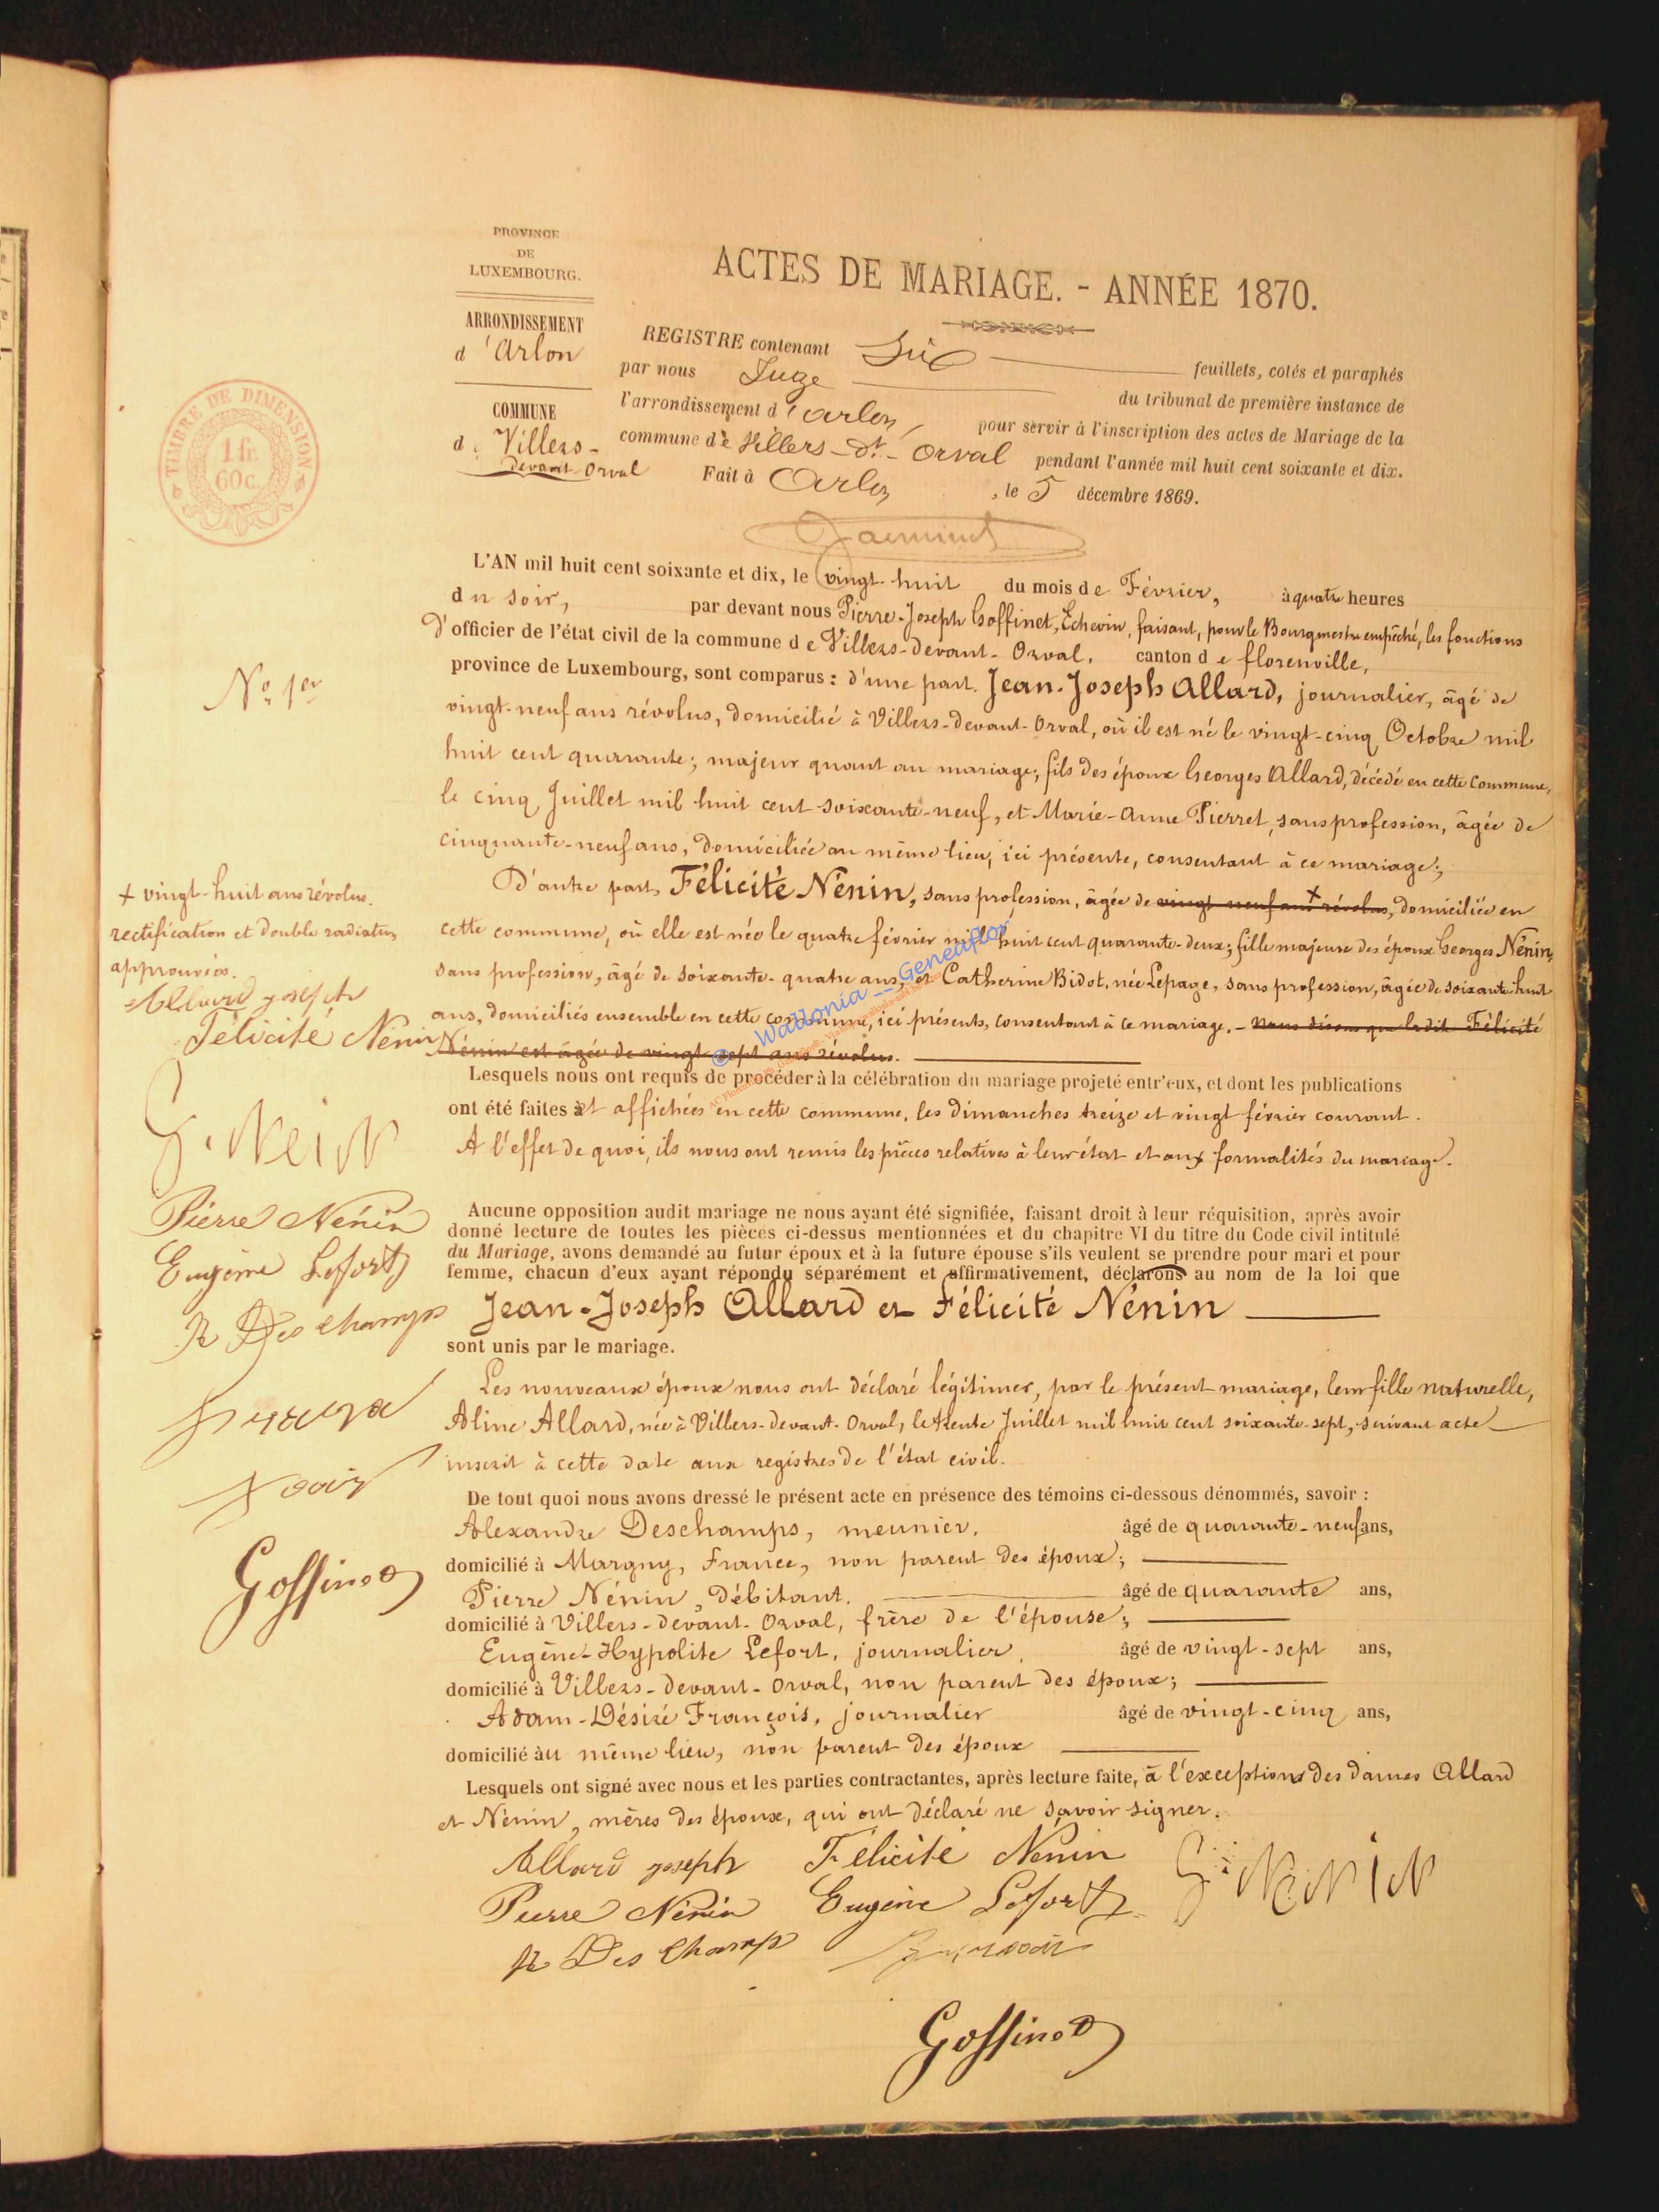 PROVINCE
DE
LUXEMBOURG.
ARRONDISSEMENT
d'Arlon
COMMUNE
de Villers-
devant-Orval
TIMBRE DE DIMENSION
1 fr.
60c.
ACTES DE MARIAGE. - ANNÉE 1870.
REGISTRE contenant Six feuillets, cotés et paraphés
par nous Juge du tribunal de première instance de
l'arrondissement d'Arlon, pour servir à l'inscription des actes de Mariage de la
commune de Villers-dt-Orval pendant l'année mil huit cent soixante et dix.
Fait à Arlon, le 5 décembre 1869.
L'AN mil huit cent soixante et dix, le vingt-huit du mois de Février, à quatre heures
du soir, par devant nous Pierre-Joseph Goffinet, Echevin, faisant, pour le Bourgmestre empêché, les fonctions
d'officier de l'état civil de la commune de Villers-devant-Orval, canton de florenville,
province de Luxembourg, sont comparus : d'une part. Jean-Joseph Allard, journalier, âgé de
vingt-neuf ans révolus, domicilié à Villers-devant-Orval, où il est né le vingt-cinq Octobre mil
huit cent quarante; majeur quant au mariage; fils des époux Georges Allard, décédé en cette commune,
le cinq Juillet mil huit cent soixante-neuf, et Marie-Anne Pierret, sans profession, âgée de
cinquante-neuf ans, domiciliée au même lieu, ici présente, consentant à ce mariage;
D'autre part, Félicité Nénin, sans profession, âgée de vingt-neuf ans + révolus, domiciliée en
cette commune, où elle est née le quatre février mil huit cent quarante-deux; fille majeure des époux Georges Nénin,
sans profession, âgé de soixante-quatre ans, et Catherine Bidot, née Lepage, sans profession, âgée de soixante-huit
ans, domiciliés ensemble en cette commune, ici présents, consentant à ce mariage. - Nous disons que ladite Félicité
Nénin est âgée de vingt-sept ans révolus.
Lesquels nous ont requis de procéder à la célébration du mariage projeté entr'eux, et dont les publications
ont été faites et affichées en cette commune, les dimanches treize et vingt février courant.
A l'effet de quoi, ils nous ont remis les pièces relatives à leur état et aux formalités du mariage.
Aucune opposition audit mariage ne nous ayant été signifiée, faisant droit à leur réquisition, après avoir
donné lecture de toutes les pièces ci-dessus mentionnées et du chapitre VI du titre du Code civil intitulé
du Mariage, avons demandé au futur époux et à la future épouse s'ils veulent se prendre pour mari et pour
femme, chacun d'eux ayant répondu séparément et affirmativement, déclarons au nom de la loi que
Jean-Joseph Allard et Félicité Nénin
sont unis par le mariage.
Les nouveaux époux nous ont déclaré légitimer, par le présent mariage, leur fille naturelle,
Aline Allard, née à Villers-devant-Orval, le trente Juillet mil huit cent soixante-sept, suivant acte
inscrit à cette date aux registres de l'état civil.
De tout quoi nous avons dressé le présent acte en présence des témoins ci-dessous dénommés, savoir :
Alexandre Deschamps, meunier, âgé de quarante-neuf ans,
domicilié à Margny, France, non parent des époux;
Pierre Nénin, Débitant, âgé de quarante ans,
domicilié à Villers-devant-Orval, frère de l'épouse;
Eugène-Hypolite Lefort, journalier, âgé de vingt-sept ans,
domicilié à Villers-devant-Orval, non parent des époux;
Adam-Désiré François, journalier âgé de vingt-cinq ans,
domicilié au même lieu, non parent des époux
Lesquels ont signé avec nous et les parties contractantes, après lecture faite, à l'exceptions des dames Allard
et Nénin, mères des époux, qui ont déclaré ne savoir signer.
Allard joseph Félicité Nénin G. NeNiN
Pierre Nénin Eugène Lefort
Des Champ
Goffinet
No 1er
+ vingt-huit ans révolus.
rectification et double radiation
approuvées.
Allard joseph
Félicité Nénin
G. NeiN
Pierre Nénin
Eugène Lefort
Des Champs
Goffinet
© Wallonia -- Geneaflor